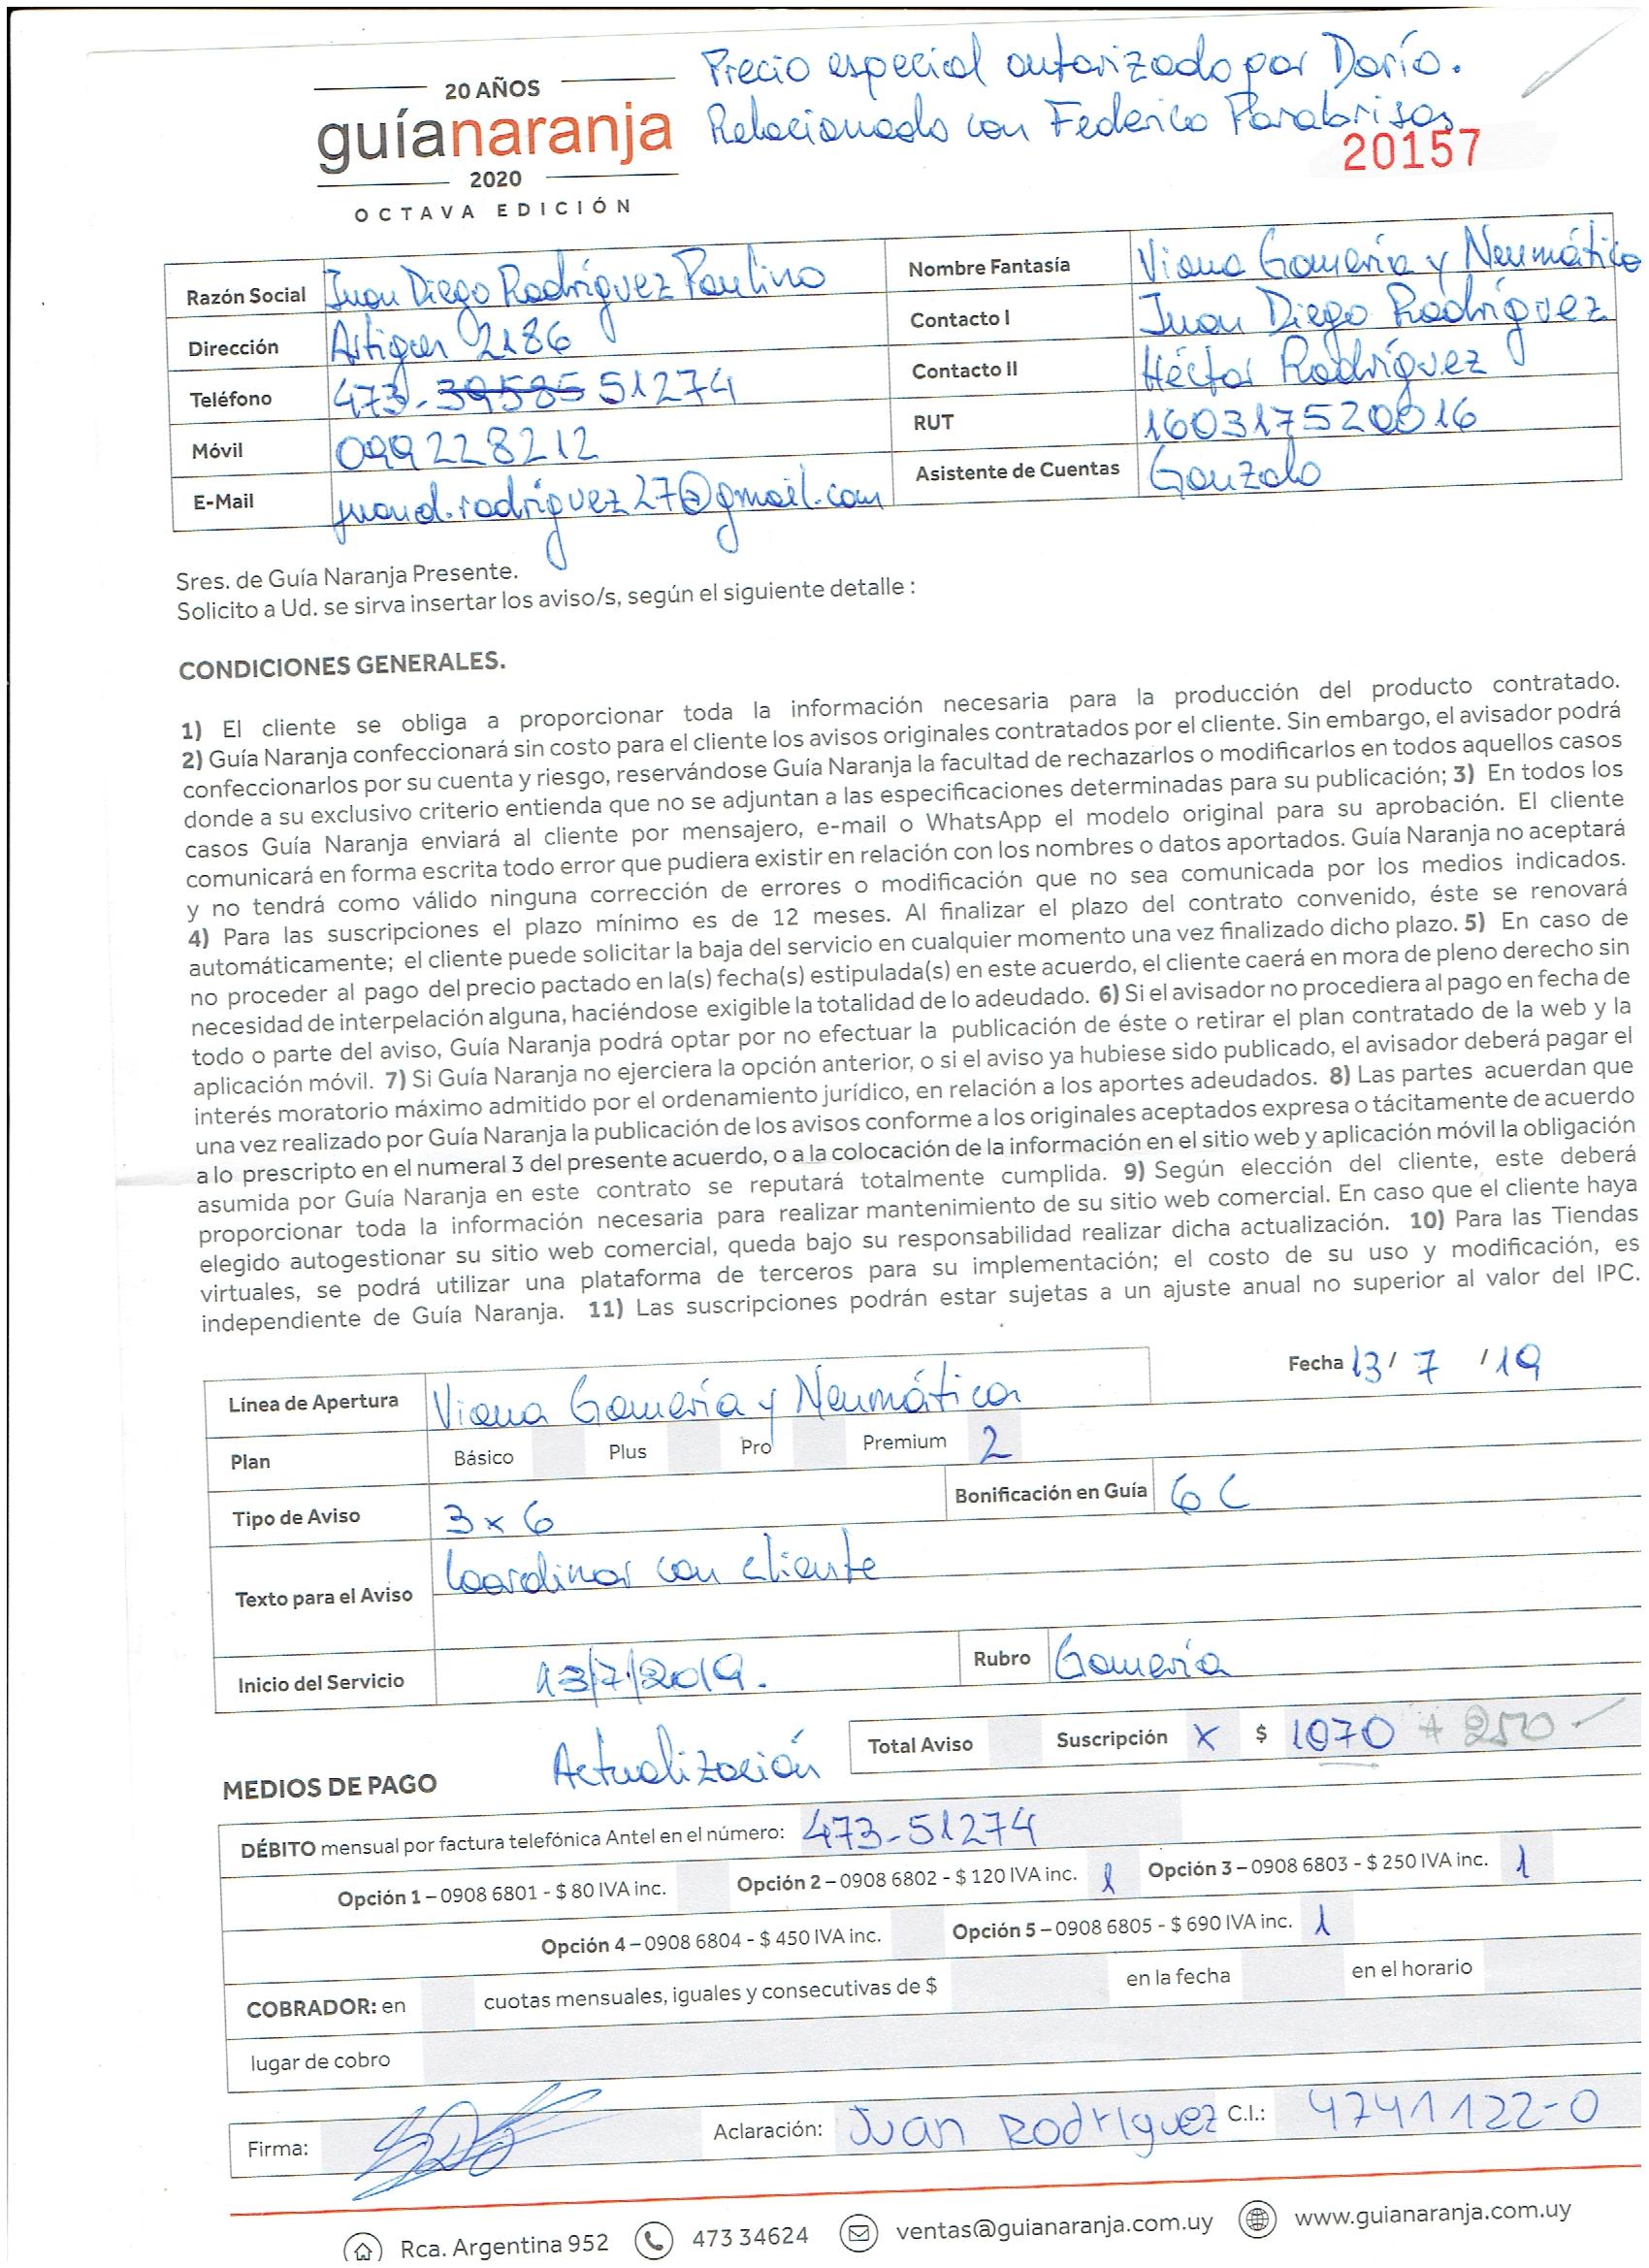 Precio especial autorizado por Darío.
Relacionado con Federico Parabrisas
20 AÑOS
guíanaranja
2020
OCTAVA EDICIÓN
20157
Razón Social Juan Diego Rodríguez Paulino
Nombre Fantasía Viana Gomería y Neumático
Dirección Artigas 2186
Contacto I Juan Diego Rodríguez
Teléfono 473-39585 51274
Contacto II Héctor Rodríguez
Móvil 099228212
RUT 160317520016
E-Mail juand.rodriguez27@gmail.com
Asistente de Cuentas Gonzalo
Sres. de Guía Naranja Presente.
Solicito a Ud. se sirva insertar los aviso/s, según el siguiente detalle :
CONDICIONES GENERALES.
1) El cliente se obliga a proporcionar toda la información necesaria para la producción del producto contratado.
2) Guía Naranja confeccionará sin costo para el cliente los avisos originales contratados por el cliente. Sin embargo, el avisador podrá
confeccionarlos por su cuenta y riesgo, reservándose Guía Naranja la facultad de rechazarlos o modificarlos en todos aquellos casos
donde a su exclusivo criterio entienda que no se adjuntan a las especificaciones determinadas para su publicación; 3) En todos los
casos Guía Naranja enviará al cliente por mensajero, e-mail o WhatsApp el modelo original para su aprobación. El cliente
comunicará en forma escrita todo error que pudiera existir en relación con los nombres o datos aportados. Guía Naranja no aceptará
y no tendrá como válido ninguna corrección de errores o modificación que no sea comunicada por los medios indicados.
4) Para las suscripciones el plazo mínimo es de 12 meses. Al finalizar el plazo del contrato convenido, éste se renovará
automáticamente; el cliente puede solicitar la baja del servicio en cualquier momento una vez finalizado dicho plazo. 5) En caso de
no proceder al pago del precio pactado en la(s) fecha(s) estipulada(s) en este acuerdo, el cliente caerá en mora de pleno derecho sin
necesidad de interpelación alguna, haciéndose exigible la totalidad de lo adeudado. 6) Si el avisador no procediera al pago en fecha de
todo o parte del aviso, Guía Naranja podrá optar por no efectuar la publicación de éste o retirar el plan contratado de la web y la
aplicación móvil. 7) Si Guía Naranja no ejerciera la opción anterior, o si el aviso ya hubiese sido publicado, el avisador deberá pagar el
interés moratorio máximo admitido por el ordenamiento jurídico, en relación a los aportes adeudados. 8) Las partes acuerdan que
una vez realizado por Guía Naranja la publicación de los avisos conforme a los originales aceptados expresa o tácitamente de acuerdo
a lo prescripto en el numeral 3 del presente acuerdo, o a la colocación de la información en el sitio web y aplicación móvil la obligación
asumida por Guía Naranja en este contrato se reputará totalmente cumplida. 9) Según elección del cliente, este deberá
proporcionar toda la información necesaria para realizar mantenimiento de su sitio web comercial. En caso que el cliente haya
elegido autogestionar su sitio web comercial, queda bajo su responsabilidad realizar dicha actualización. 10) Para las Tiendas
virtuales, se podrá utilizar una plataforma de terceros para su implementación; el costo de su uso y modificación, es
independiente de Guía Naranja. 11) Las suscripciones podrán estar sujetas a un ajuste anual no superior al valor del IPC.
Fecha 13/ 7 /19
Línea de Apertura Viana Gomería y Neumática
Plan Básico Plus Pro Premium 2
Tipo de Aviso 3x6 Bonificación en Guía 6C
Texto para el Aviso Coordinar con cliente
Inicio del Servicio 13/7/2019. Rubro Gomería
Total Aviso Suscripción X $ 1070 + 250
MEDIOS DE PAGO Actualización
DÉBITO mensual por factura telefónica Antel en el número: 473-51274
Opción 1 – 0908 6801 - $ 80 IVA inc. Opción 2 – 0908 6802 - $ 120 IVA inc. 1 Opción 3 – 0908 6803 - $ 250 IVA inc. 1
Opción 4 – 0908 6804 - $ 450 IVA inc. Opción 5 – 0908 6805 - $ 690 IVA inc. 1
COBRADOR: en cuotas mensuales, iguales y consecutivas de $ en la fecha en el horario
lugar de cobro
Firma: Aclaración: Juan Rodríguez C.I.: 4741122-0
Rca. Argentina 952 473 34624 ventas@guianaranja.com.uy www.guianaranja.com.uy